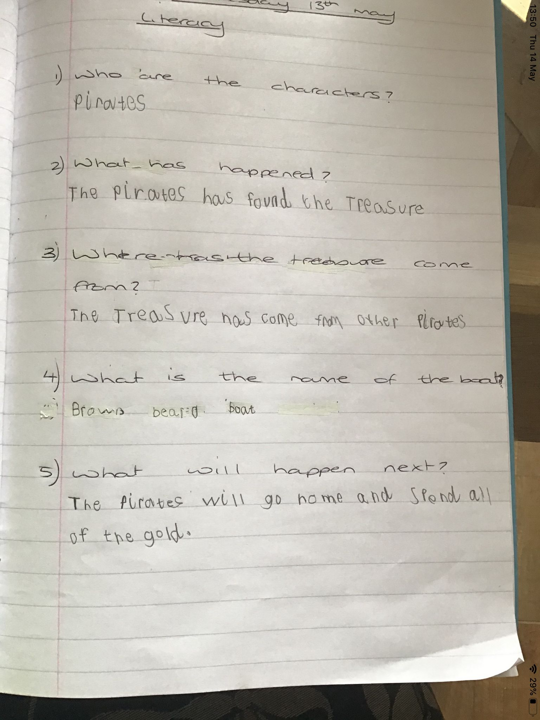 13th may
Literacy
1) who are the characters?
Pirates
2) What has happened?
The Pirates has found the Treasure
3) Where has the treasure come
from?
The Treasure has come from other Pirates
4) What is the name of the boat?
Browns beard boat
5) what will happen next?
The Pirates will go home and spend all
of the gold.
13:50 Thu 14 May
29%